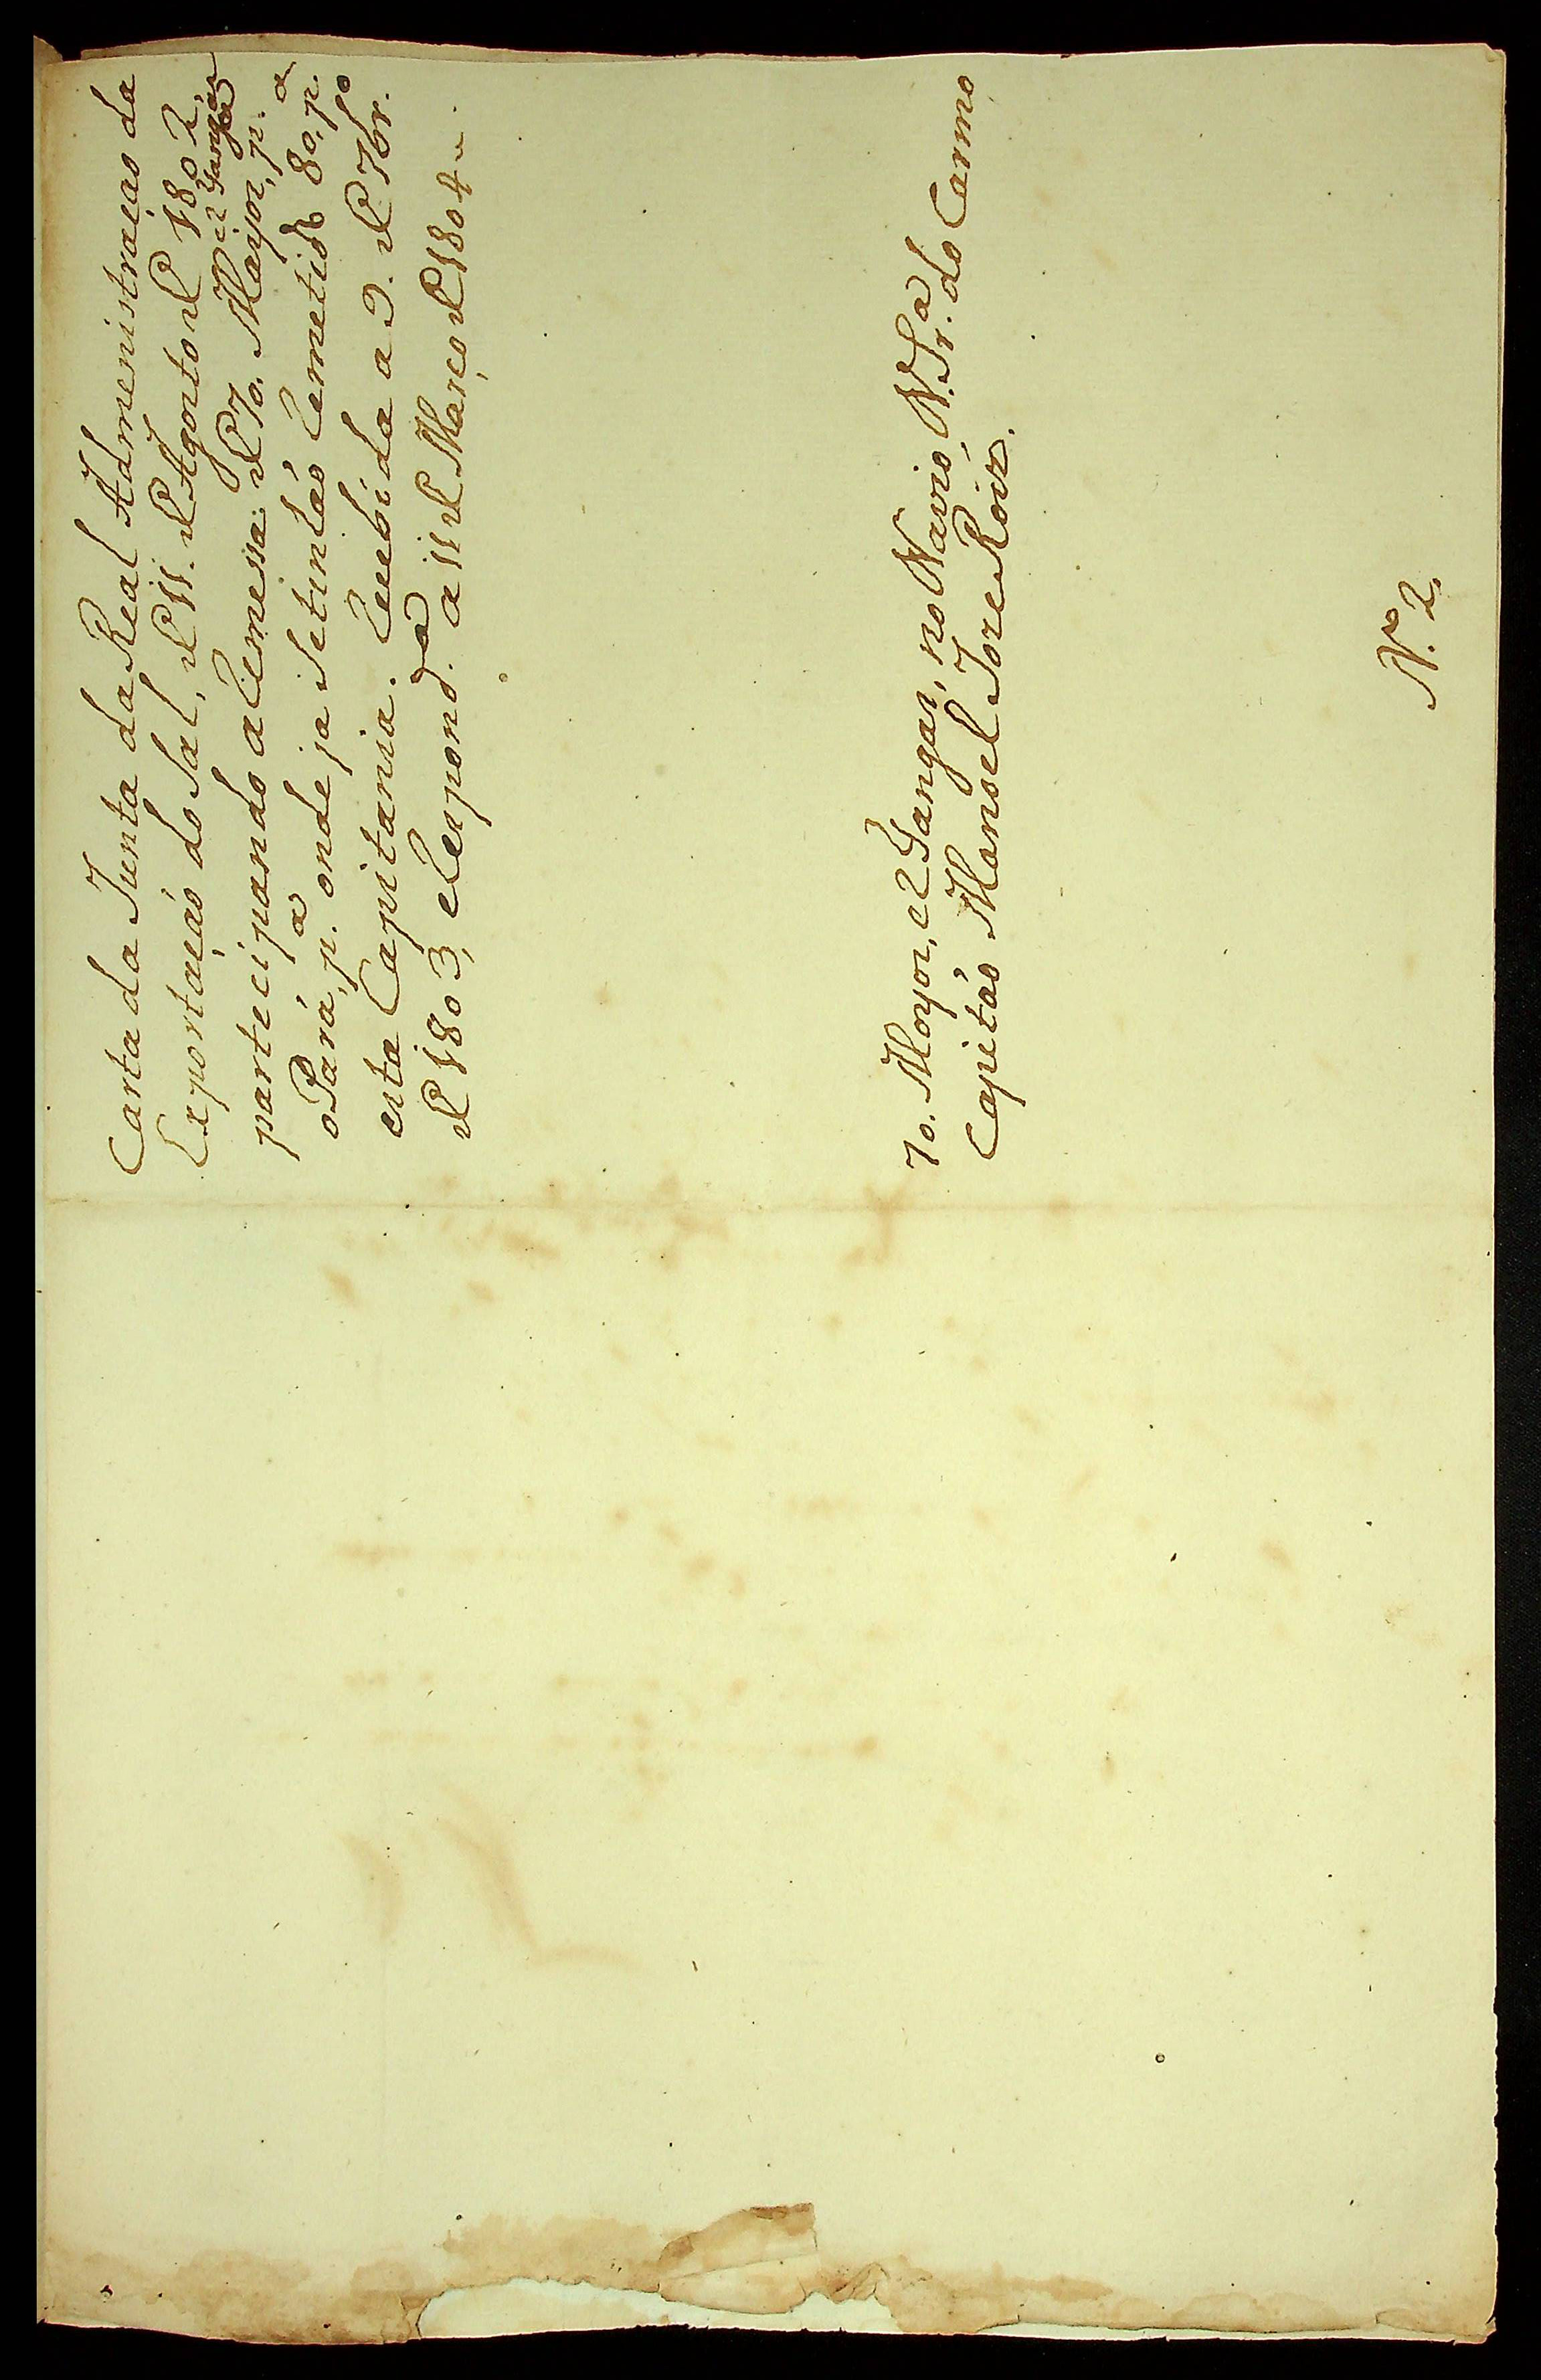 Carta da Junta da Real Admenistração da
Exportação do Sal, de 11. de Agosto de 1802,
e 2 Gangas
partecipando a Remessa de 70. Moyos, p.ª
o Pará, p.ª onde ja Setinhão Remetido 80, p.ª
esta Capitania. Recebida a 9. de 7br.º
de 1803, e Respond.da a 11 de Março de 1804
70. Moyos, e 2 Gangas, no Navio, N. Sr.ª do Carmo
Capitão Manoel Joze Roiz.
N.º 2,